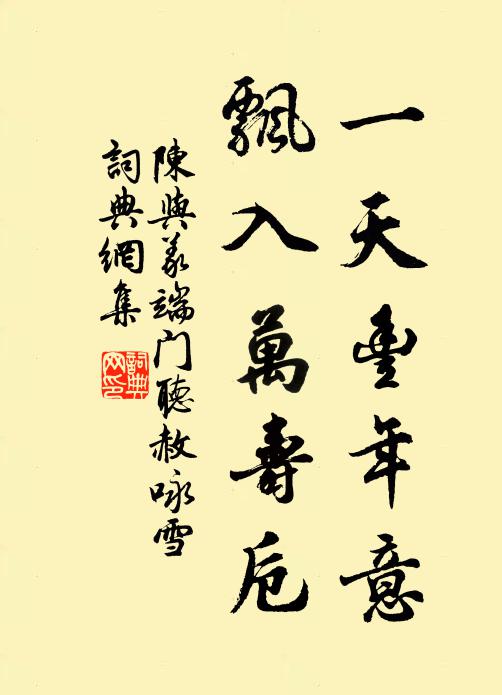 一天豐年意
飄入萬壽卮
陳與義端門聽赦咏雪
詞典網集
詞典網印